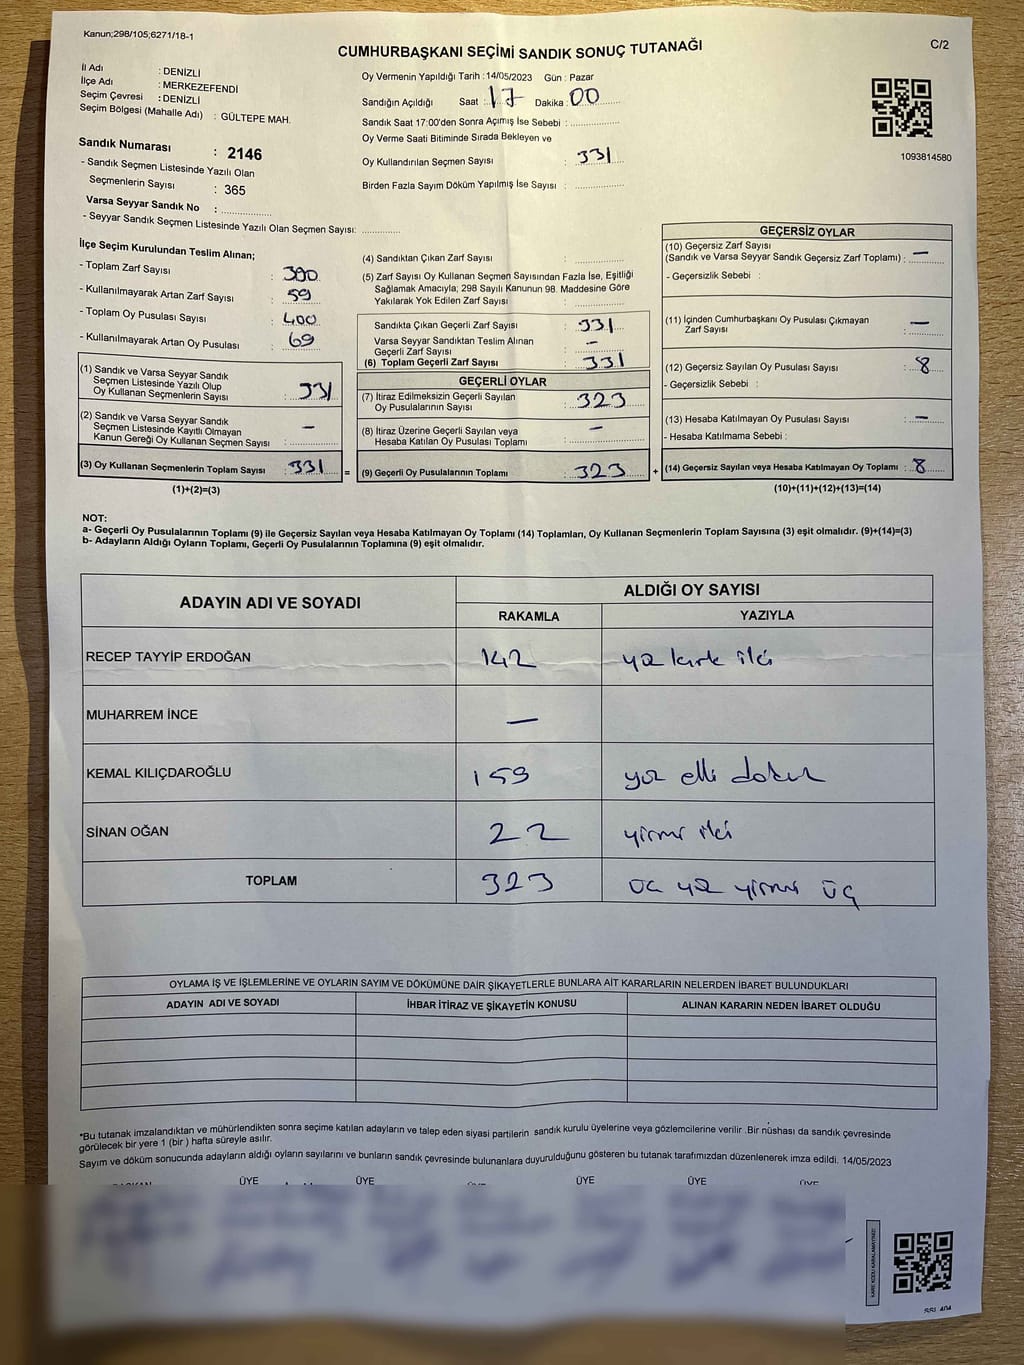 Kanun;298/105;6271/18-1
CUMHURBAŞKANI SEÇİMİ SANDIK SONUÇ TUTANAĞI
C/2
İl Adı : DENİZLİ
İlçe Adı : MERKEZEFENDİ
Seçim Çevresi : DENİZLİ
Seçim Bölgesi (Mahalle Adı) : GÜLTEPE MAH.
Sandık Numarası : 2146
- Sandık Seçmen Listesinde Yazılı Olan
Seçmenlerin Sayısı : 365
Varsa Seyyar Sandık No : ................
- Seyyar Sandık Seçmen Listesinde Yazılı Olan Seçmen Sayısı: ............
Oy Vermenin Yapıldığı Tarih : 14/05/2023 Gün : Pazar
Sandığın Açıldığı Saat : 17 Dakika : 00
Sandık Saat 17:00'den Sonra Açımış İse Sebebi : ................
Oy Verme Saati Bitiminde Sırada Bekleyen ve
Oy Kullandırılan Seçmen Sayısı : 331
Birden Fazla Sayım Döküm Yapılmış İse Sayısı : ................
1093814580
İlçe Seçim Kurulundan Teslim Alınan;
- Toplam Zarf Sayısı : 390
- Kullanılmayarak Artan Zarf Sayısı : 59
- Toplam Oy Pusulası Sayısı : 400
- Kullanılmayarak Artan Oy Pusulası : 69
(1) Sandık ve Varsa Seyyar Sandık
Seçmen Listesinde Yazılı Olup
Oy Kullanan Seçmenlerin Sayısı : 331
(2) Sandık ve Varsa Seyyar Sandık
Seçmen Listesinde Kayıtlı Olmayan
Kanun Gereği Oy Kullanan Seçmen Sayısı : —
(3) Oy Kullanan Seçmenlerin Toplam Sayısı : 331 =
(1)+(2)=(3)
(4) Sandıktan Çıkan Zarf Sayısı : ................
(5) Zarf Sayısı Oy Kullanan Seçmen Sayısından Fazla İse, Eşitliği
Sağlamak Amacıyla; 298 Sayılı Kanunun 98. Maddesine Göre
Yakılarak Yok Edilen Zarf Sayısı : ................
Sandıkta Çıkan Geçerli Zarf Sayısı : 331
Varsa Seyyar Sandıktan Teslim Alınan
Geçerli Zarf Sayısı : —
(6) Toplam Geçerli Zarf Sayısı : 331
GEÇERLİ OYLAR
(7) İtiraz Edilmeksizin Geçerli Sayılan
Oy Pusulalarının Sayısı : 323
(8) İtiraz Üzerine Geçerli Sayılan veya
Hesaba Katılan Oy Pusulası Toplamı : —
(9) Geçerli Oy Pusulalarının Toplamı : 323 +
GEÇERSİZ OYLAR
(10) Geçersiz Zarf Sayısı
(Sandık ve Varsa Seyyar Sandık Geçersiz Zarf Toplamı) : —
- Geçersizlik Sebebi :
(11) İçinden Cumhurbaşkanı Oy Pusulası Çıkmayan
Zarf Sayısı : —
(12) Geçersiz Sayılan Oy Pusulası Sayısı : 8
- Geçersizlik Sebebi :
(13) Hesaba Katılmayan Oy Pusulası Sayısı : —
- Hesaba Katılmama Sebebi :
(14) Geçersiz Sayılan veya Hesaba Katılmayan Oy Toplamı : 8
(10)+(11)+(12)+(13)=(14)
NOT:
a- Geçerli Oy Pusulalarının Toplamı (9) ile Geçersiz Sayılan veya Hesaba Katılmayan Oy Toplamı (14) Toplamları, Oy Kullanan Seçmenlerin Toplam Sayısına (3) eşit olmalıdır. (9)+(14)=(3)
b- Adayların Aldığı Oyların Toplamı, Geçerli Oy Pusulalarının Toplamına (9) eşit olmalıdır.
ADAYIN ADI VE SOYADI
ALDIĞI OY SAYISI
RAKAMLA YAZIYLA
RECEP TAYYİP ERDOĞAN 142 yüz kırk iki
MUHARREM İNCE —
KEMAL KILIÇDAROĞLU 159 yüz elli dokuz
SİNAN OĞAN 22 yirmi iki
TOPLAM 323 üç yüz yirmi üç
OYLAMA İŞ VE İŞLEMLERİNE VE OYLARIN SAYIM VE DÖKÜMÜNE DAİR ŞİKAYETLERLE BUNLARA AİT KARARLARIN NELERDEN İBARET BULUNDUKLARI
ADAYIN ADI VE SOYADI İHBAR İTİRAZ VE ŞİKAYETİN KONUSU ALINAN KARARIN NEDEN İBARET OLDUĞU
*Bu tutanak imzalandıktan ve mühürlendikten sonra seçime katılan adayların ve talep eden siyasi partilerin sandık kurulu üyelerine veya gözlemcilerine verilir .Bir nüshası da sandık çevresinde
görülecek bir yere 1 (bir ) hafta süreyle asılır.
Sayım ve döküm sonucunda adayların aldığı oyların sayılarını ve bunların sandık çevresinde bulunanlara duyurulduğunu gösteren bu tutanak tarafımızdan düzenlenerek imza edildi. 14/05/2023
ÜYE ÜYE ÜYE ÜYE
KARE KODU KARALAMAYINIZ!